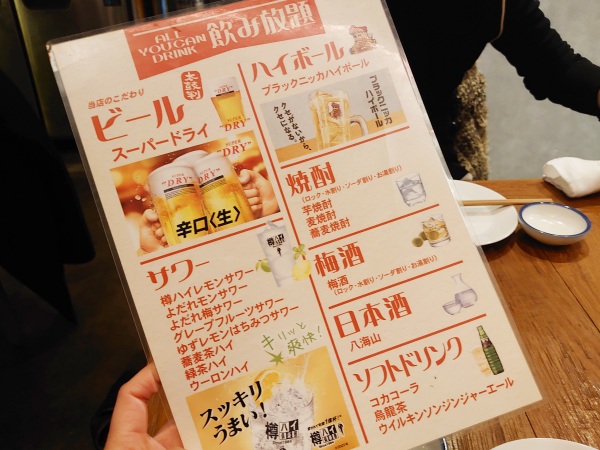 ALL
YOU CAN
DRINK
飲み放題
当店のこだわり
太鼓判
ビール
スーパードライ
SUPER
"DRY"
SUPER
"DRY"
辛口〈生〉
サワー
樽ハイレモンサワー
よだれモンサワー
よだれ梅サワー
グレープフルーツサワー
ゆずレモンはちみつサワー
蕎麦茶ハイ
緑茶ハイ
ウーロンハイ
キリッと
爽快!
スッキリ
うまい!
樽ハイ
ハイボール
ブラックニッカハイボール
クセがないから、
クセになる。
ブラックニッカ
ハイボール
焼酎
(ロック・水割り・ソーダ割り・お湯割り)
芋焼酎
麦焼酎
蕎麦焼酎
梅酒
梅酒
(ロック・水割り・ソーダ割り・お湯割り)
日本酒
八海山
ソフトドリンク
コカコーラ
烏龍茶
ウイルキンソンジンジャーエール